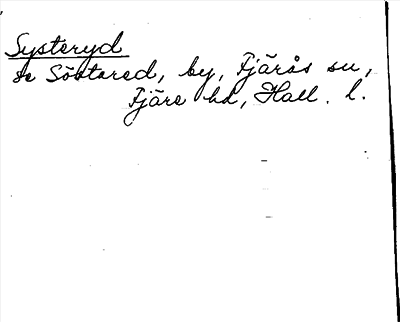 Systeryd
se Söstared, by, Fjärås sn,
Fjäre hd, Hall. l.